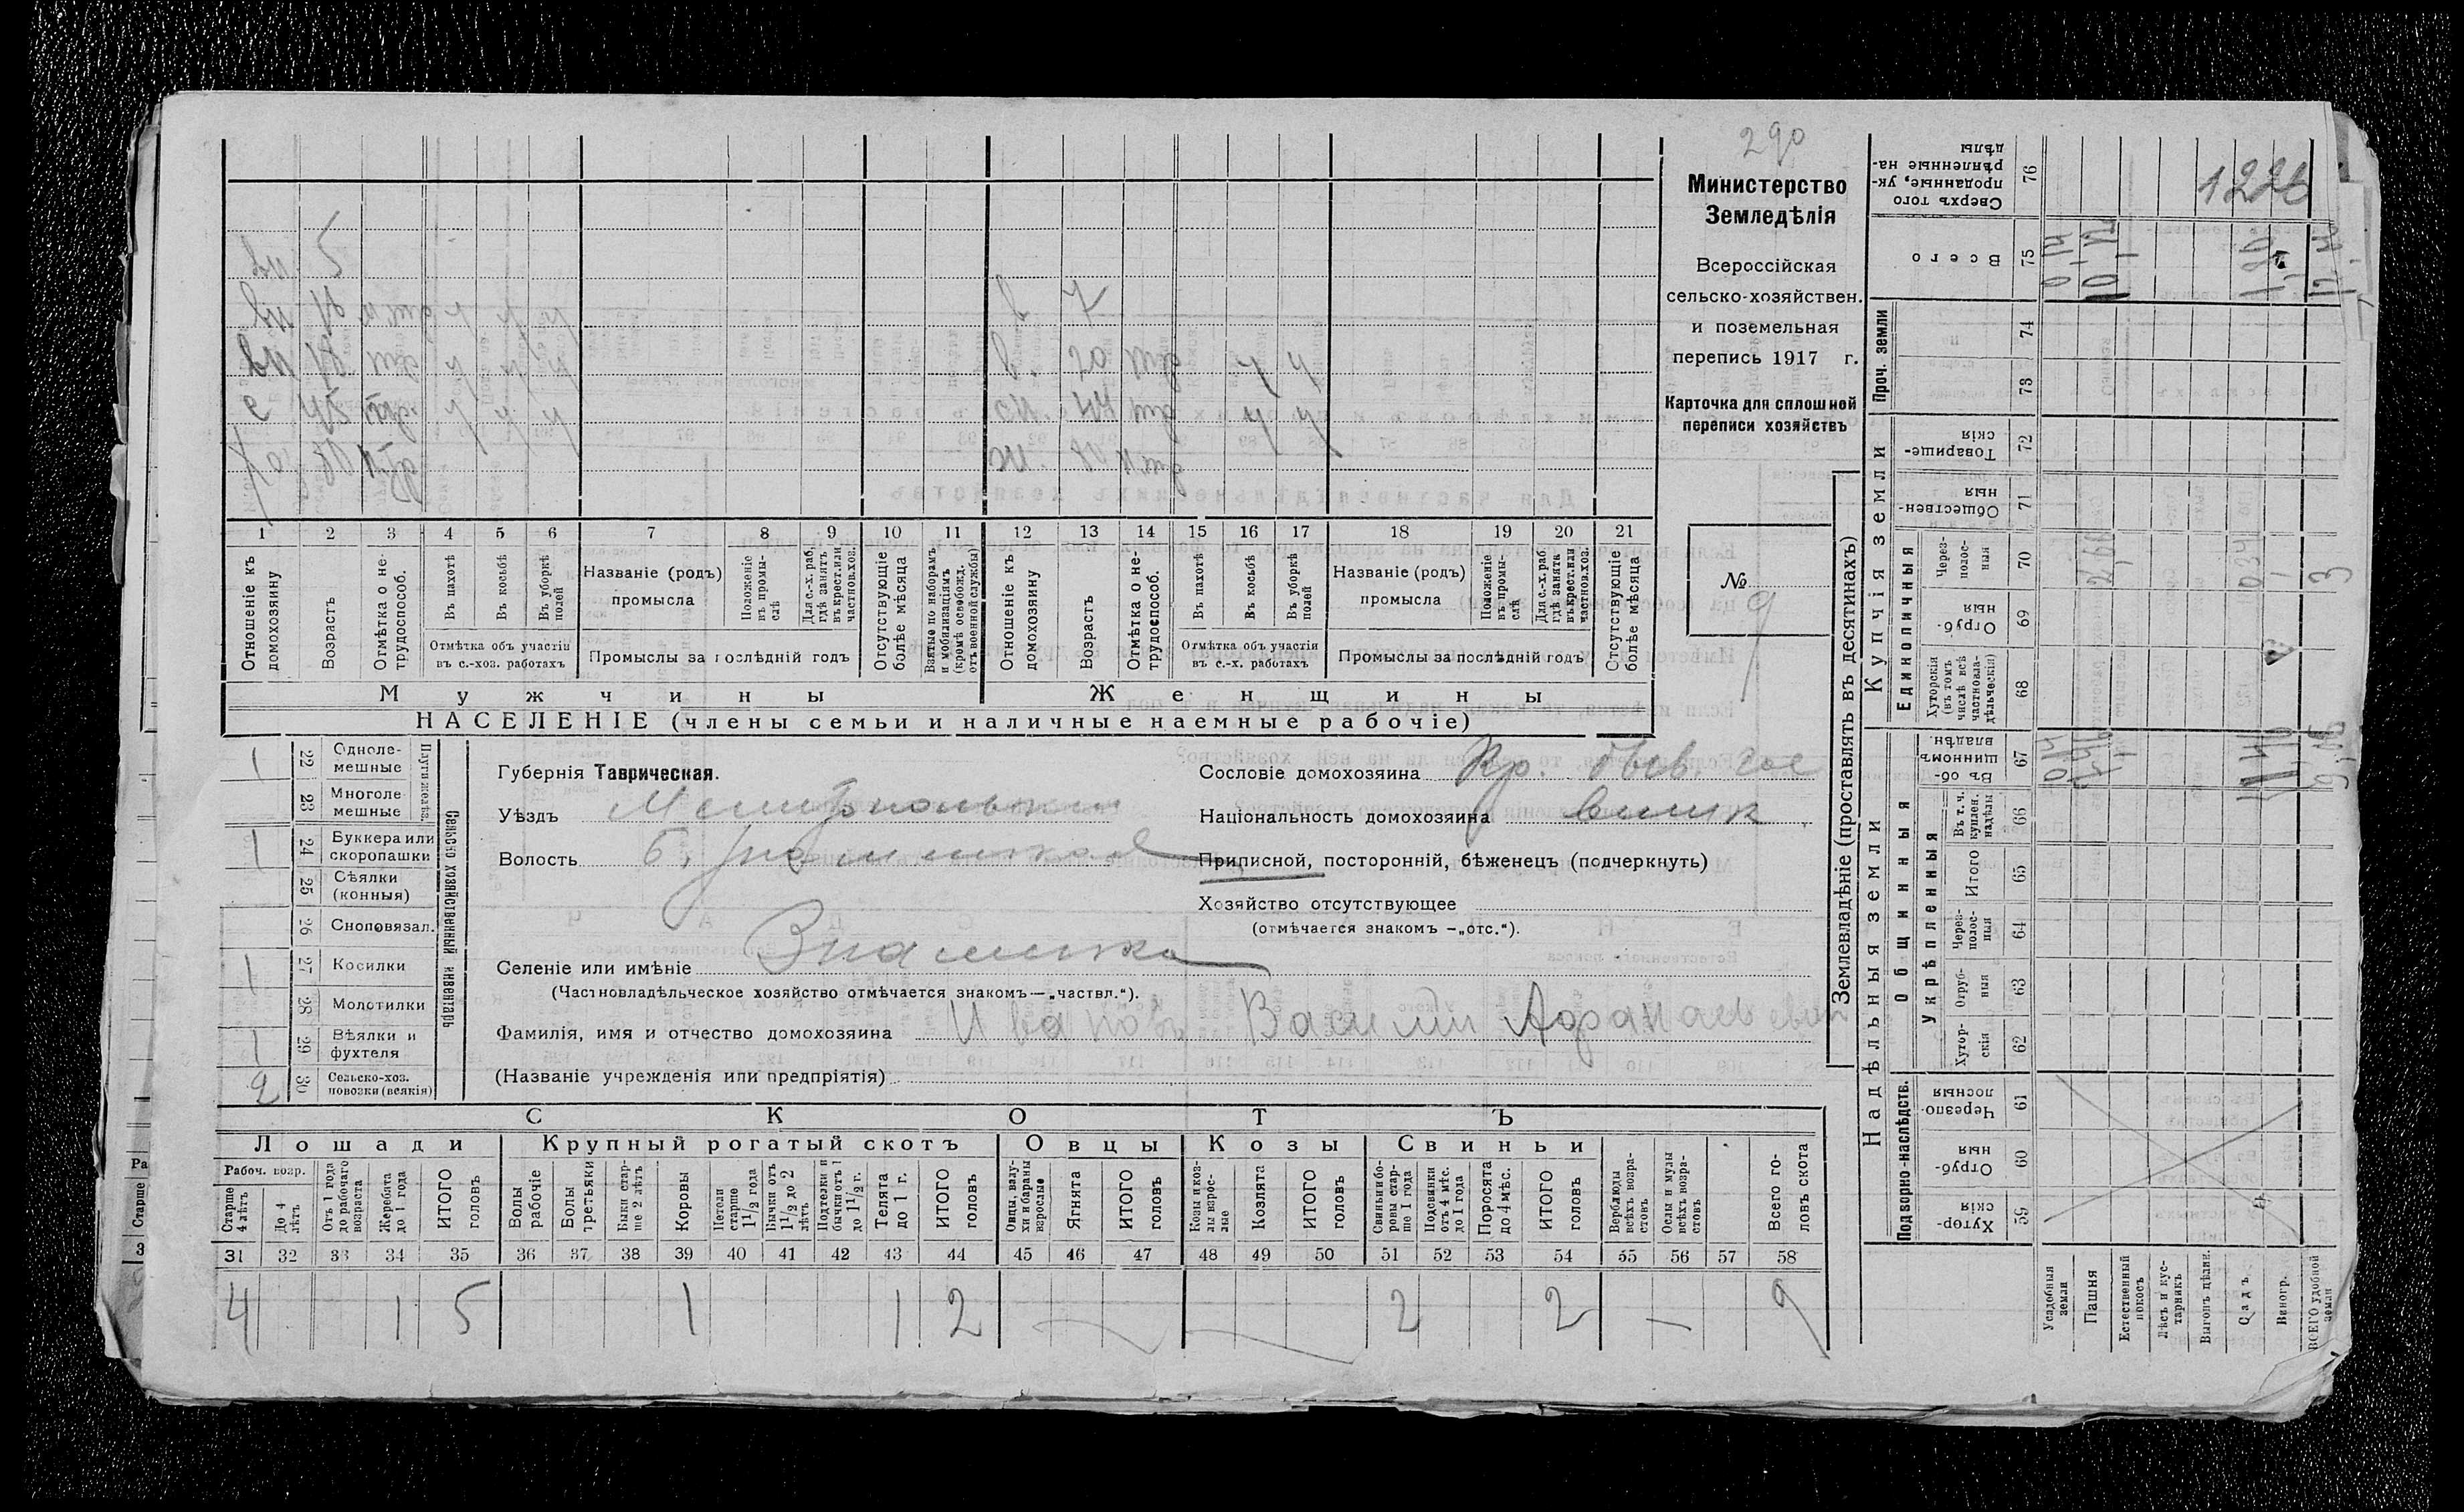 290
Министерство
Земледѣлія
Всероссійская
сельско-хозяйствен.
и поземельная
перепись 1917 г.
Карточка для сплошной
переписи хозяйствъ
№
9
вн 5
вн
в 7
вн 18 в 20
с 45 44
Хоз
1 2 3 4 5 6 7 8 9 10 11 12 13 14 15 16 17 18 19 20 21
Отношеніе къ домохозяину
Возрастъ
Отмѣтка о нетрудоспособ.
Въ пахотѣ
Въ косьбѣ
Въ уборкѣ полей
Отмѣтка объ участіи въ с.-хоз. работахъ
Названіе (родъ) промысла
Положеніе въ промыслѣ
Для с.-х. раб. гдѣ занятъ въ крест. или частнов. хоз.
Промыслы за послѣдній годъ
Отсутствующіе болѣе мѣсяца
Взятые по наборамъ и мобилизаціямъ (кромѣ освобожд. отъ военной службы)
Отношеніе къ домохозяину
Возрастъ
Отмѣтка о нетрудоспособ.
Въ пахотѣ
Въ косьбѣ
Въ уборкѣ полей
Отмѣтка объ участіи въ с.-х. работахъ
Названіе (родъ) промысла
Положеніе въ промыслѣ
Для с.-х. раб. гдѣ занята въ крест. или частнов. хоз.
Промыслы за послѣдній годъ
Отсутствующіе болѣе мѣсяца
Мужчины Женщины
НАСЕЛЕНІЕ (члены семьи и наличные наемные рабочіе)
Сельско хозяйственный инвентарь
Плуги желѣз.
1 22 Однолемешные
23 Многолемешные
1 24 Буккера или скоропашки
25 Сѣялки (конныя)
26 Сноповязал.
1 27 Косилки
28 Молотилки
1 29 Вѣялки и фухтеля
2 30 Сельско-хоз. повозки (всякія)
Губернія Таврическая.
Уѣздъ Мелитопольскій
Волость Б. Знаменская
Селеніе или имѣніе Знаменка
(Частновладѣльческое хозяйство отмѣчается знакомъ—„частвл.“).
Фамилія, имя и отчество домохозяина Ивановъ Василий Афанасьевич
(Названіе учрежденія или предпріятія)
Сословіе домохозяина Кр. бывш. гос
Національность домохозяина
Приписной, посторонній, бѣженецъ (подчеркнуть)
Хозяйство отсутствующее
(отмѣчается знакомъ -„отс.“).
СКОТЪ
Лошади Крупный рогатый скотъ Овцы Козы Свиньи
Рабоч. возр.
Старше 4 лѣтъ
До 4 лѣтъ
Отъ 1 года до рабочаго возраста
Жеребята до 1 года
ИТОГО головъ
Волы рабочіе
Волы третьяки
Быки старше 2 лѣтъ
Коровы
Нетели старше 1½ года
Бычки отъ 1½ до 2 лѣтъ
Подтелки и бычки отъ 1 до 1½ г.
Телята до 1 г.
ИТОГО головъ
Овцы, валухи и бараны взрослые
Ягнята
ИТОГО головъ
Козы и козлы взрослые
Козлята
ИТОГО головъ
Свиньи и боровы старше 1 года
Подсвинки отъ 4 мѣс. до 1 года
Поросята до 4 мѣс.
ИТОГО головъ
Верблюды всѣхъ возрастовъ
Ослы и мулы всѣхъ возрастовъ
Всего головъ скота
31 32 33 34 35 36 37 38 39 40 41 42 43 44 45 46 47 48 49 50 51 52 53 54 55 56 57 58
4 1 5 1 1 2 2 2 — 9
Землевладѣніе (проставлять въ десятинахъ)
Купчія земли
Проч. земли
Единоличныя
Надѣльныя земли
Общинныя
Укрѣпленныя
Подворно-наслѣдств.
Сверхъ того проданные, укрѣпленные надѣлы 76
1226
Всего 75
74
73
Товарищескія 72
Общественныя 71
Черезполосныя 70
Отрубныя 69
Хуторскія (въ томъ числѣ всѣ частновладѣльческія) 68
3
Въ общинномъ владѣн. 67
Въ т. ч. куплен. надѣлы 66
Итого 65
Черезполосныя 64
Отрубныя 63
Хуторскія 62
Черезполосныя 61
Отрубныя 60
Хуторскія 59
Усадебныя земли
Пашня
Естественный покосъ
Лѣсъ и кустарникъ
Выгонъ дѣлин.
Садъ
Виногр.
ВСЕГО удобной земли
Ра
Старше
3